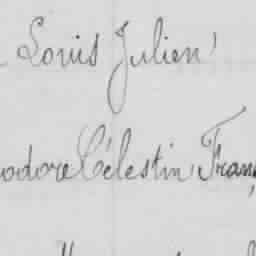 Louis Julien
odore Célestin Franç